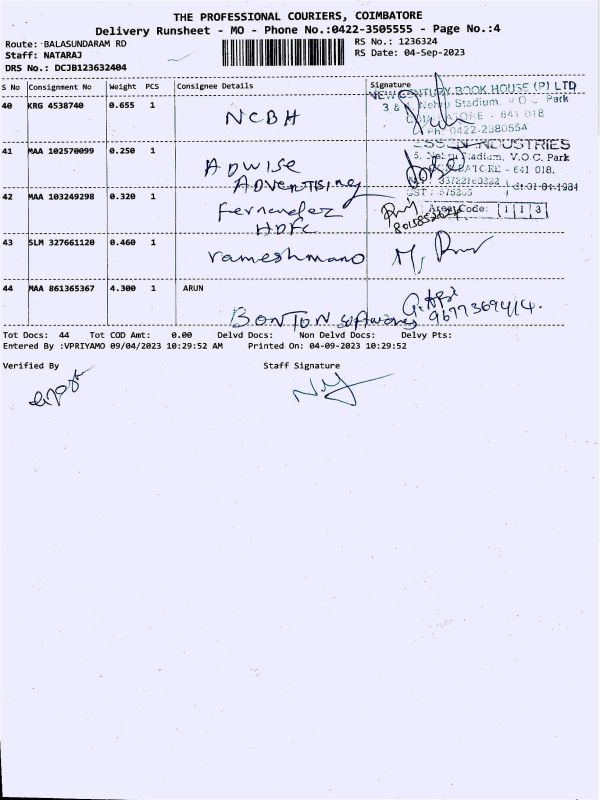 THE PROFESSIONAL COURIERS, COIMBATORE
Delivery Runsheet - MO - Phone No.:0422-3505555 - Page No.:4
Route: BALASUNDARAM RD
RS No.: 1236324
Staff: NATARAJ
RS Date: 04-Sep-2023
DRS No.: DCJB123632404
S No Consignment No Weight PCS Consignee Details Signature
NEW CENTURY BOOK HOUSE (P) LTD
40 KRG 4538740 0.655 1
3 & Nehru Stadium, V O Park
NCBH
641 018
Ph: 0422-2380554
ESSEN INDUSTRIES
41 MAA 102570099 0.250 1
5, Nehru Stadium, V.O.C. Park
ADWISE
641 018.
ADVERTISING
dt:01-04-1984
42 MAA 103249298 0.320 1
Fernandez
Area Code: 1 1 3
HDFC
43 SLM 327661120 0.460 1
rameshmano
44 MAA 861365367 4.300 1 ARUN
BONTON softwares
9677369414.
Tot Docs: 44 Tot COD Amt: 0.00 Delvd Docs: Non Delvd Docs: Delvy Pts:
Entered By :VPRIYAMO 09/04/2023 10:29:52 AM Printed On: 04-09-2023 10:29:52
Verified By Staff Signature